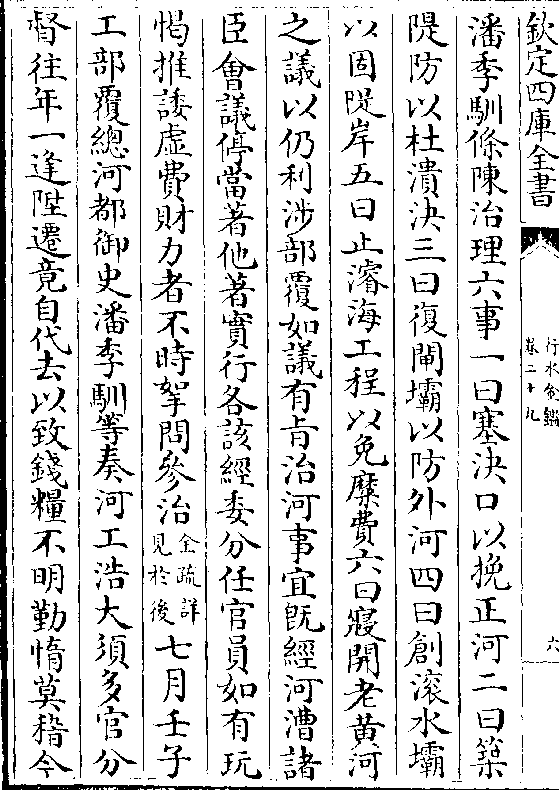 欽定四庫全書
行水金鑑
卷二十九
六
潘季馴條陳治理六事一曰塞決口以挽正河二曰築
隄防以杜潰決三曰復閘壩以防外河四曰創滚水壩
以固隄岸五曰止濬海工程以免糜費六曰寢開老黄河
之議以仍利涉部覆如議有㫖治河事宜既經河漕諸
臣會議停當著他著實行各該經委分任官員如有玩
愒推諉虛費財力者不時拏問參治全疏詳見於後七月壬子
工部覆總河都御史潘季馴等奏河工浩大須多官分
督往年一逢陞遷竟自代去以致錢糧不明勤惰莫稽今